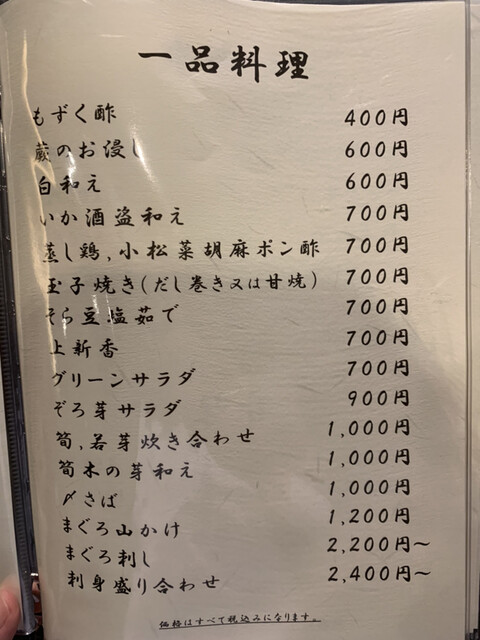 一品料理
もずく酢 400円
蕨のお浸し 600円
白和え 600円
いか酒盗和え 700円
蒸し鶏,小松菜胡麻ポン酢 700円
玉子焼き(だし巻き又は甘焼) 700円
そら豆塩茹で 700円
上新香 700円
グリーンサラダ 700円
ぞろ芽サラダ 900円
筍,若芽炊き合わせ 1,000円
筍木の芽和え 1,000円
〆さば 1,000円
まぐろ山かけ 1,200円
まぐろ刺し 2,200円～
刺身盛り合わせ 2,400円～
価格はすべて税込みになります。